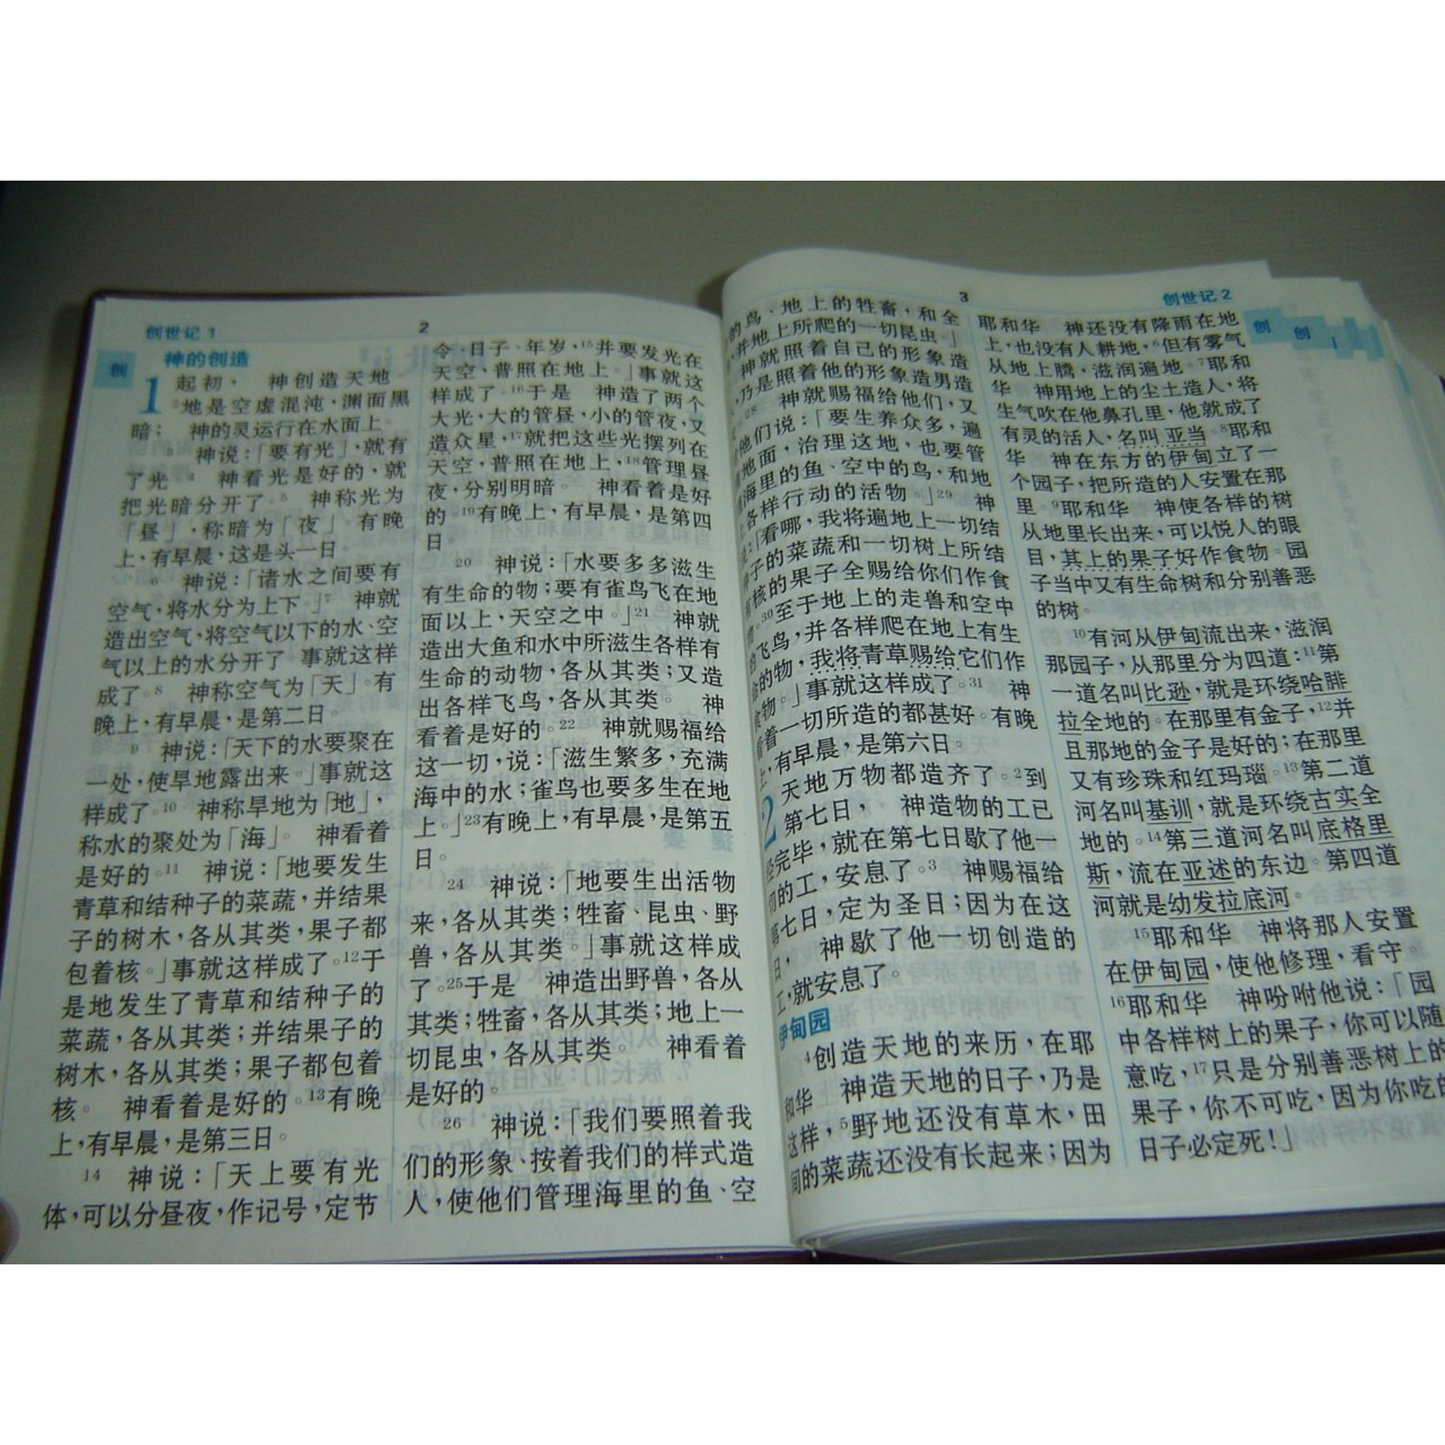 创世记 1
2
创
神的创造
1 起初， 神创造天地
2地是空虚混沌，渊面黑
暗； 神的灵运行在水面上
3 神说：「要有光」，就有
了光 4 神看光是好的，就
把光暗分开了。5 神称光为
「昼」，称暗为「夜」 有晚
上，有早晨，这是头一日。
6 神说：「诸水之间要有
空气，将水分为上下。」7 神就
造出空气，将空气以下的水、空
气以上的水分开了 事就这样
成了。8 神称空气为「天」。有
晚上，有早晨，是第二日。
9 神说：「天下的水要聚在
一处，使旱地露出来。」事就这
样成了。10 神称旱地为「地」，
称水的聚处为「海」。 神看着
是好的。11 神说：「地要发生
青草和结种子的菜蔬，并结果
子的树木，各从其类，果子都
包着核。」事就这样成了。12于
是地发生了青草和结种子的
菜蔬，各从其类；并结果子的
树木，各从其类；果子都包着
核。 神看着是好的。13有晚
上，有早晨，是第三日。
14 神说：「天上要有光
体，可以分昼夜，作记号，定节
令、日子、年岁，15并要发光在
天空，普照在地上。」事就这
样成了。16于是 神造了两个
大光，大的管昼，小的管夜，又
造众星，17就把这些光摆列在
天空，普照在地上，18管理昼
夜，分别明暗。 神看着是好
的 19有晚上，有早晨，是第四
日
20 神说：「水要多多滋生
有生命的物；要有雀鸟飞在地
面以上，天空之中。」21 神就
造出大鱼和水中所滋生各样有
生命的动物，各从其类；又造
出各样飞鸟，各从其类。 神
看着是好的。22 神就赐福给
这一切，说：「滋生繁多，充满
海中的水；雀鸟也要多生在地
上。」23有晚上，有早晨，是第五
日。
24 神说：「地要生出活物
来，各从其类；牲畜、昆虫、野
兽，各从其类。」事就这样成
了。25于是 神造出野兽，各从
其类；牲畜，各从其类；地上一
切昆虫，各从其类。 神看着
是好的。
26 神说：「我们要照着我
们的形象、按着我们的样式造
人，使他们管理海里的鱼、空
3
创世记 2
创
创
的鸟、地上的牲畜，和全
，并地上所爬的一切昆虫。」
神就照着自己的形象造
，乃是照着他的形象造男造
28 神就赐福给他们，又
他们说：「要生养众多，遍
地面，治理这地，也要管
海里的鱼、空中的鸟，和地
各样行动的活物。」29 神
：「看哪，我将遍地上一切结
子的菜蔬和一切树上所结
核的果子全赐给你们作食
。30至于地上的走兽和空中
的飞鸟，并各样爬在地上有生
命的物，我将青草赐给它们作
食物。」事就这样成了。31 神
看着一切所造的都甚好。有晚
上，有早晨，是第六日。
2 天地万物都造齐了。2到
第七日， 神造物的工已
经完毕，就在第七日歇了他一
切的工，安息了。3 神赐福给
第七日，定为圣日；因为在这
日， 神歇了他一切创造的
工，就安息了。
伊甸园
4创造天地的来历，在耶
和华 神造天地的日子，乃是
这样，5野地还没有草木，田
间的菜蔬还没有长起来；因为
耶和华 神还没有降雨在地
上，也没有人耕地，6但有雾气
从地上腾，滋润遍地。7耶和
华 神用地上的尘土造人，将
生气吹在他鼻孔里，他就成了
有灵的活人，名叫亚当。8耶和
华 神在东方的伊甸立了一
个园子，把所造的人安置在那
里。9耶和华 神使各样的树
从地里长出来，可以悦人的眼
目，其上的果子好作食物。园
子当中又有生命树和分别善恶
的树。
10有河从伊甸流出来，滋润
那园子，从那里分为四道：11第
一道名叫比逊，就是环绕哈腓
拉全地的。在那里有金子，12并
且那地的金子是好的；在那里
又有珍珠和红玛瑙。13第二道
河名叫基训，就是环绕古实全
地的。14第三道河名叫底格里
斯，流在亚述的东边。第四道
河就是幼发拉底河。
15耶和华 神将那人安置
在伊甸园，使他修理，看守。
16耶和华 神吩咐他说：「园
中各样树上的果子，你可以随
意吃，17只是分别善恶树上的
果子，你不可吃，因为你吃的
日子必定死！」